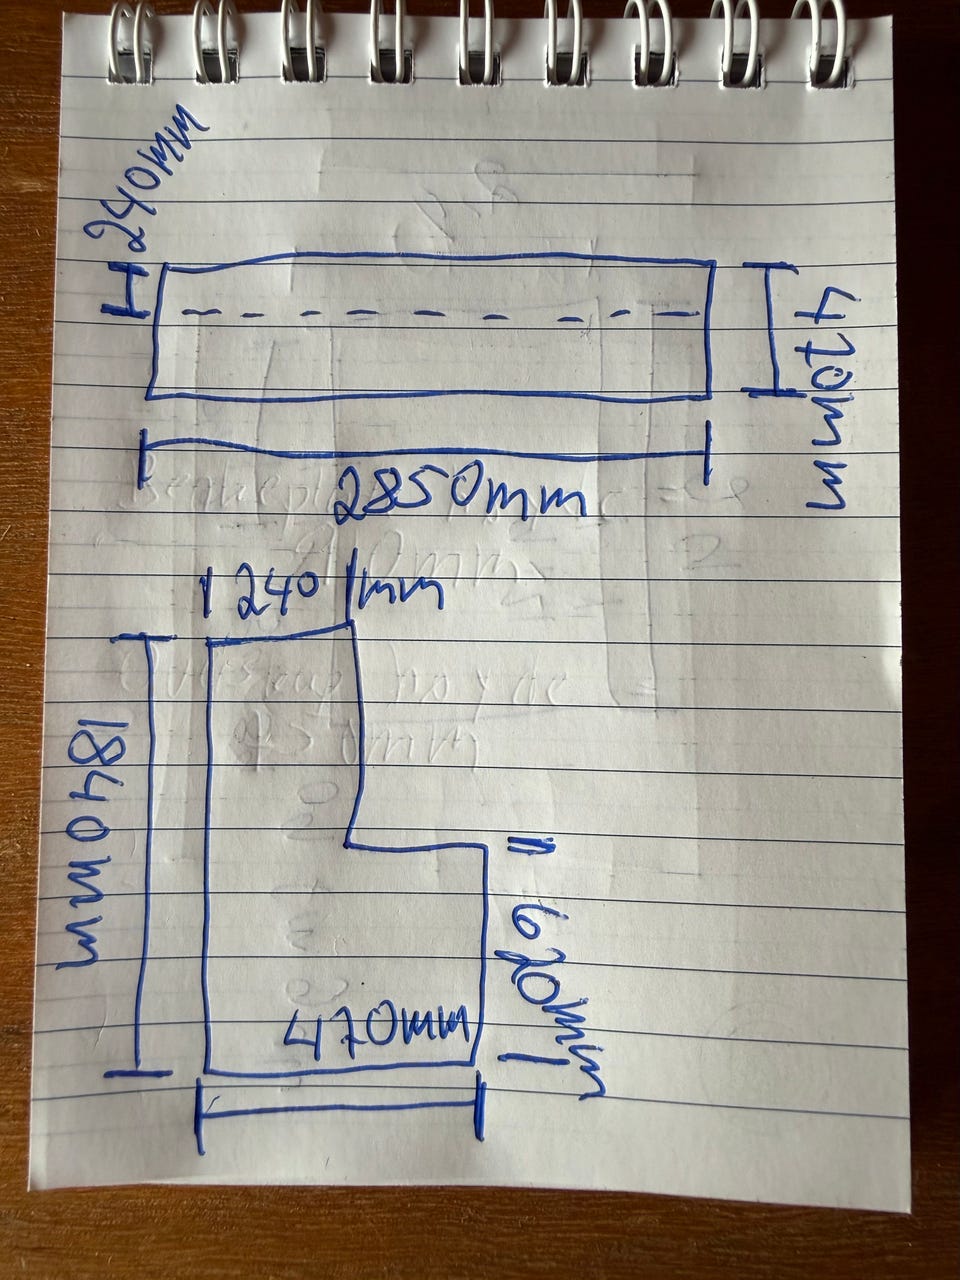 240mm
470mm
2850mm
240 mm
1840mm
620mm
470mm